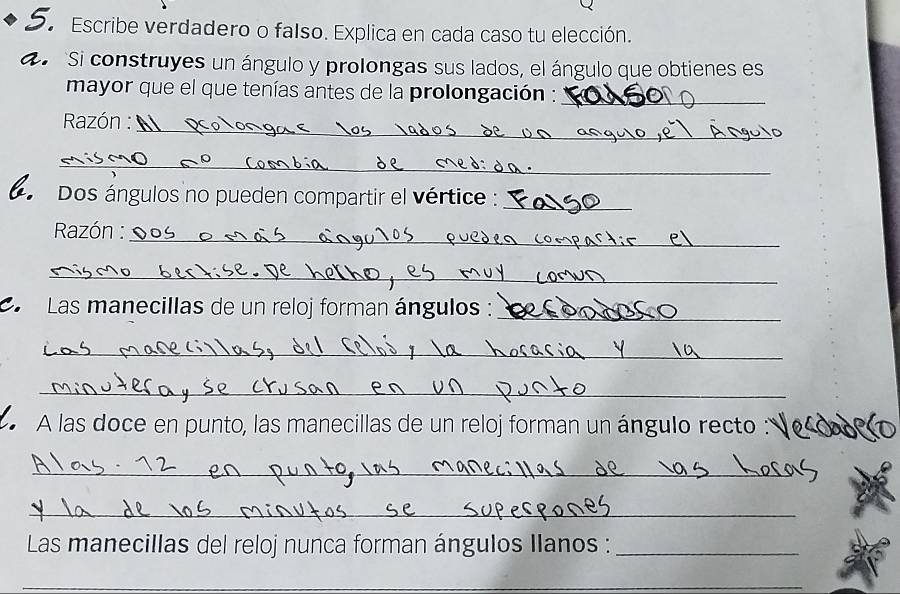 5. Escribe verdadero o falso. Explica en cada caso tu elección.
a. Si construyes un ángulo y prolongas sus lados, el ángulo que obtienes es
mayor que el que tenías antes de la prolongación : Falso
Razón : Al prolongar los lados de un angulo, el Ángulo
mismo no combia de medida.
b. Dos ángulos no pueden compartir el vértice : Falso
Razón : Dos o más ángulos pueden compartir el
mismo bertise. De hecho, es muy comun
c. Las manecillas de un reloj forman ángulos : berdadero
Las manecillas, del reloj, la horaria y la
minutera, se crusan en un punto
A las doce en punto, las manecillas de un reloj forman un ángulo recto : Verdadero
A las 12 en punto, las manecillas de las horas
y la de los minutos se superpones
Las manecillas del reloj nunca forman ángulos llanos :